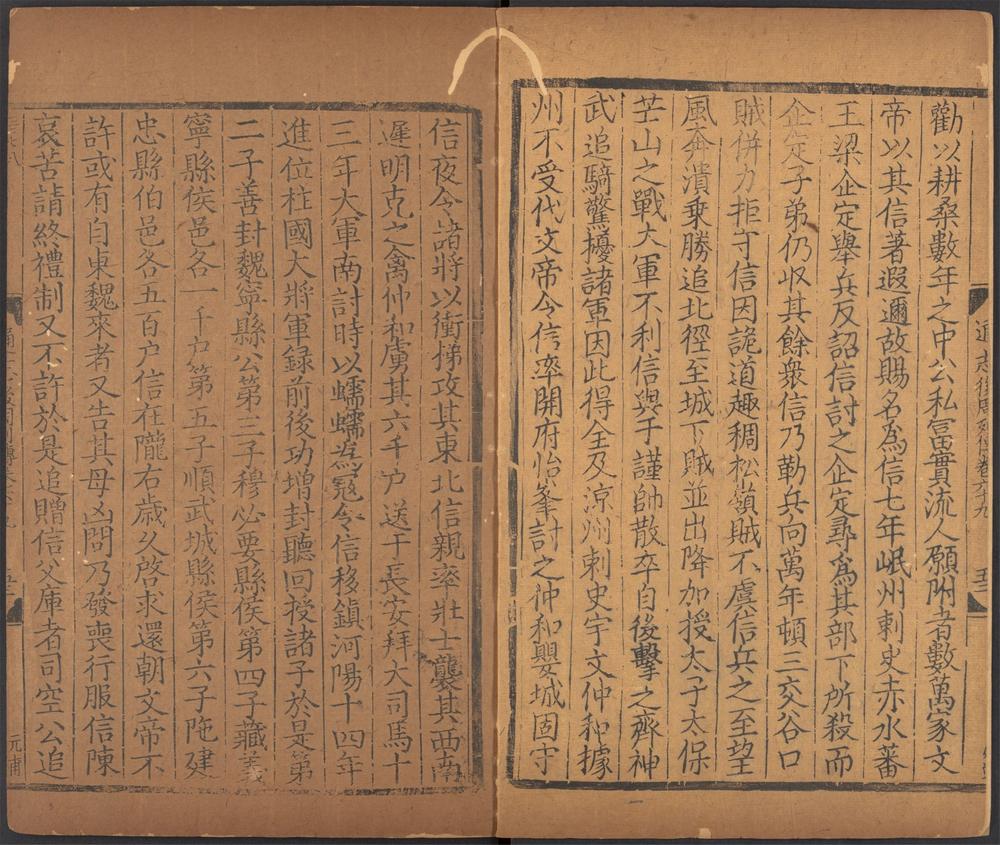 勸以耕桑數年之中公私富實流人願附者數萬家文
帝以其信著遐邇故賜名為信七年岷州刺史赤水蕃
王梁企定舉兵反詔信討之企定尋為其部下所殺而
企定子弟仍收其餘衆信乃勒兵向萬年頓三交谷口
賊併力拒守信因詭道趣稠松嶺賊不虞信兵之至望
風奔潰乗勝追北徑至城下賊並出降加授太子太保
芒山之戰大軍不利信與于謹帥散卒自後擊之齊神
武追騎驚擾諸軍因此得全及涼州刺史宇文仲和據
州不受代文帝令信率開府怡峯討之仲和嬰城固守
信夜令諸將以衝梯攻其東北信親率壯士襲其西南
遲明克之禽仲和虜其六千戶送于長安拜大司馬十
三年大軍南討時以蠕蠕為寇令信移鎮河陽十四年
進位柱國大將軍録前後功增封聽回授諸子於是第
二子善封魏寧縣公第三子穆必要縣侯第四子藏義
寧縣侯邑各一千戶第五子順武城縣侯第六子陁建
忠縣伯邑各五百戶信在隴右歲久啓求還朝文帝不
許或有自東魏來者又告其母凶問乃發喪行服信陳
哀苦請終禮制又不許於是追贈信父庫者司空公追
通志後周列傳卷六十九